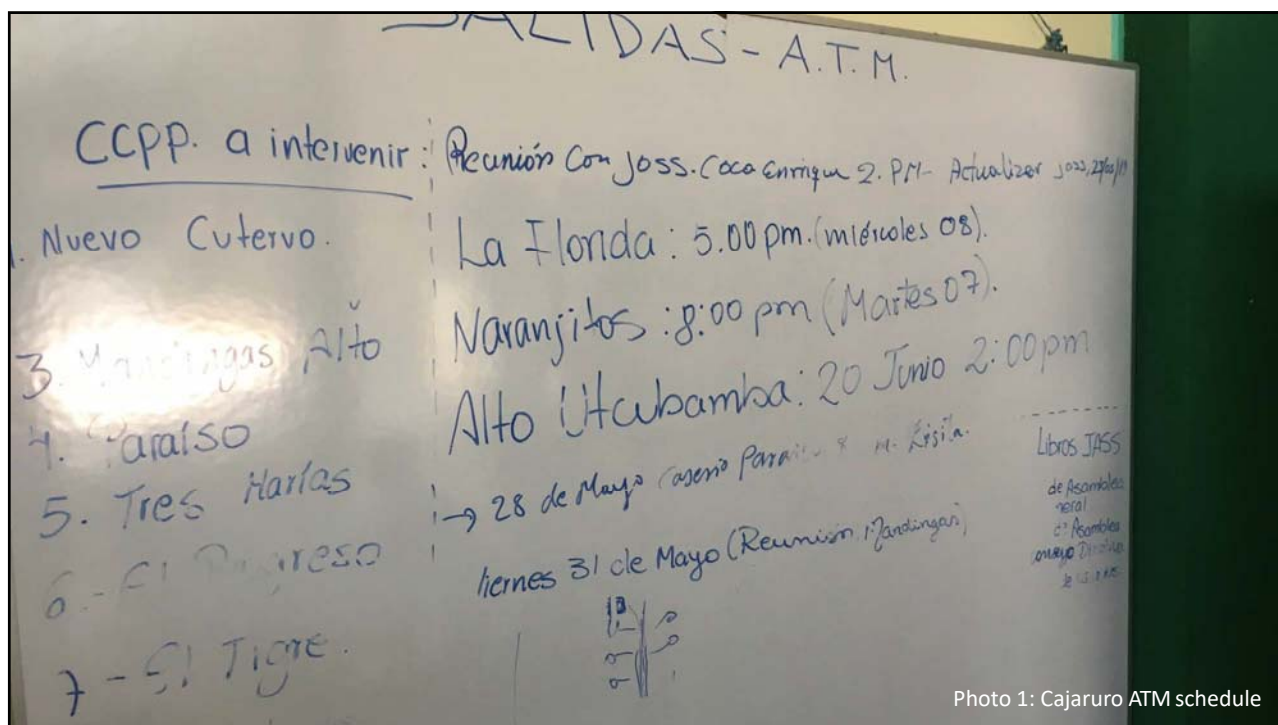 SALIDAS - A.T.M.
CCPP. a intervenir:
1. Nuevo Cutervo.
3. Mandingas Alto
4. Paraíso
5. Tres Marías
6.- El Progreso
7 - El Tigre.
Reunión Con Joss. Coco Enrique 2. PM- Actualizar
La Florida: 5.00 pm. (miércoles 08).
Naranjitos: 8:00 pm (Martes 07).
Alto Utcubamba: 20 Junio 2:00 pm
→ 28 de Mayo Caserio
Viernes 31 de Mayo (Reunión Mandingas)
Libros JASS
de Asamblea
Asamblea
Photo 1: Cajaruro ATM schedule